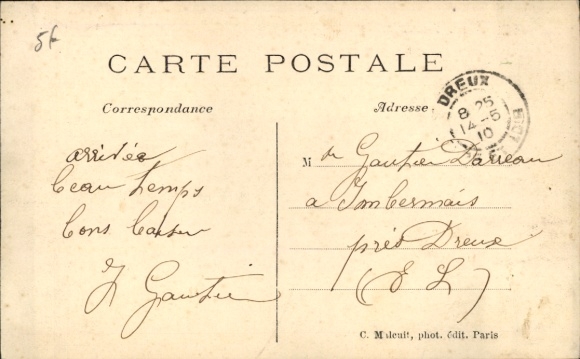 56
CARTE POSTALE
Correspondance
Adresse
DREUX
8 25
14-5
10
arrivée
beau temps
bons baiser
Gautier
M
Gautier Darreau
a Imbermais
près Dreux
(E L)
C. Malcuit, phot. édit. Paris